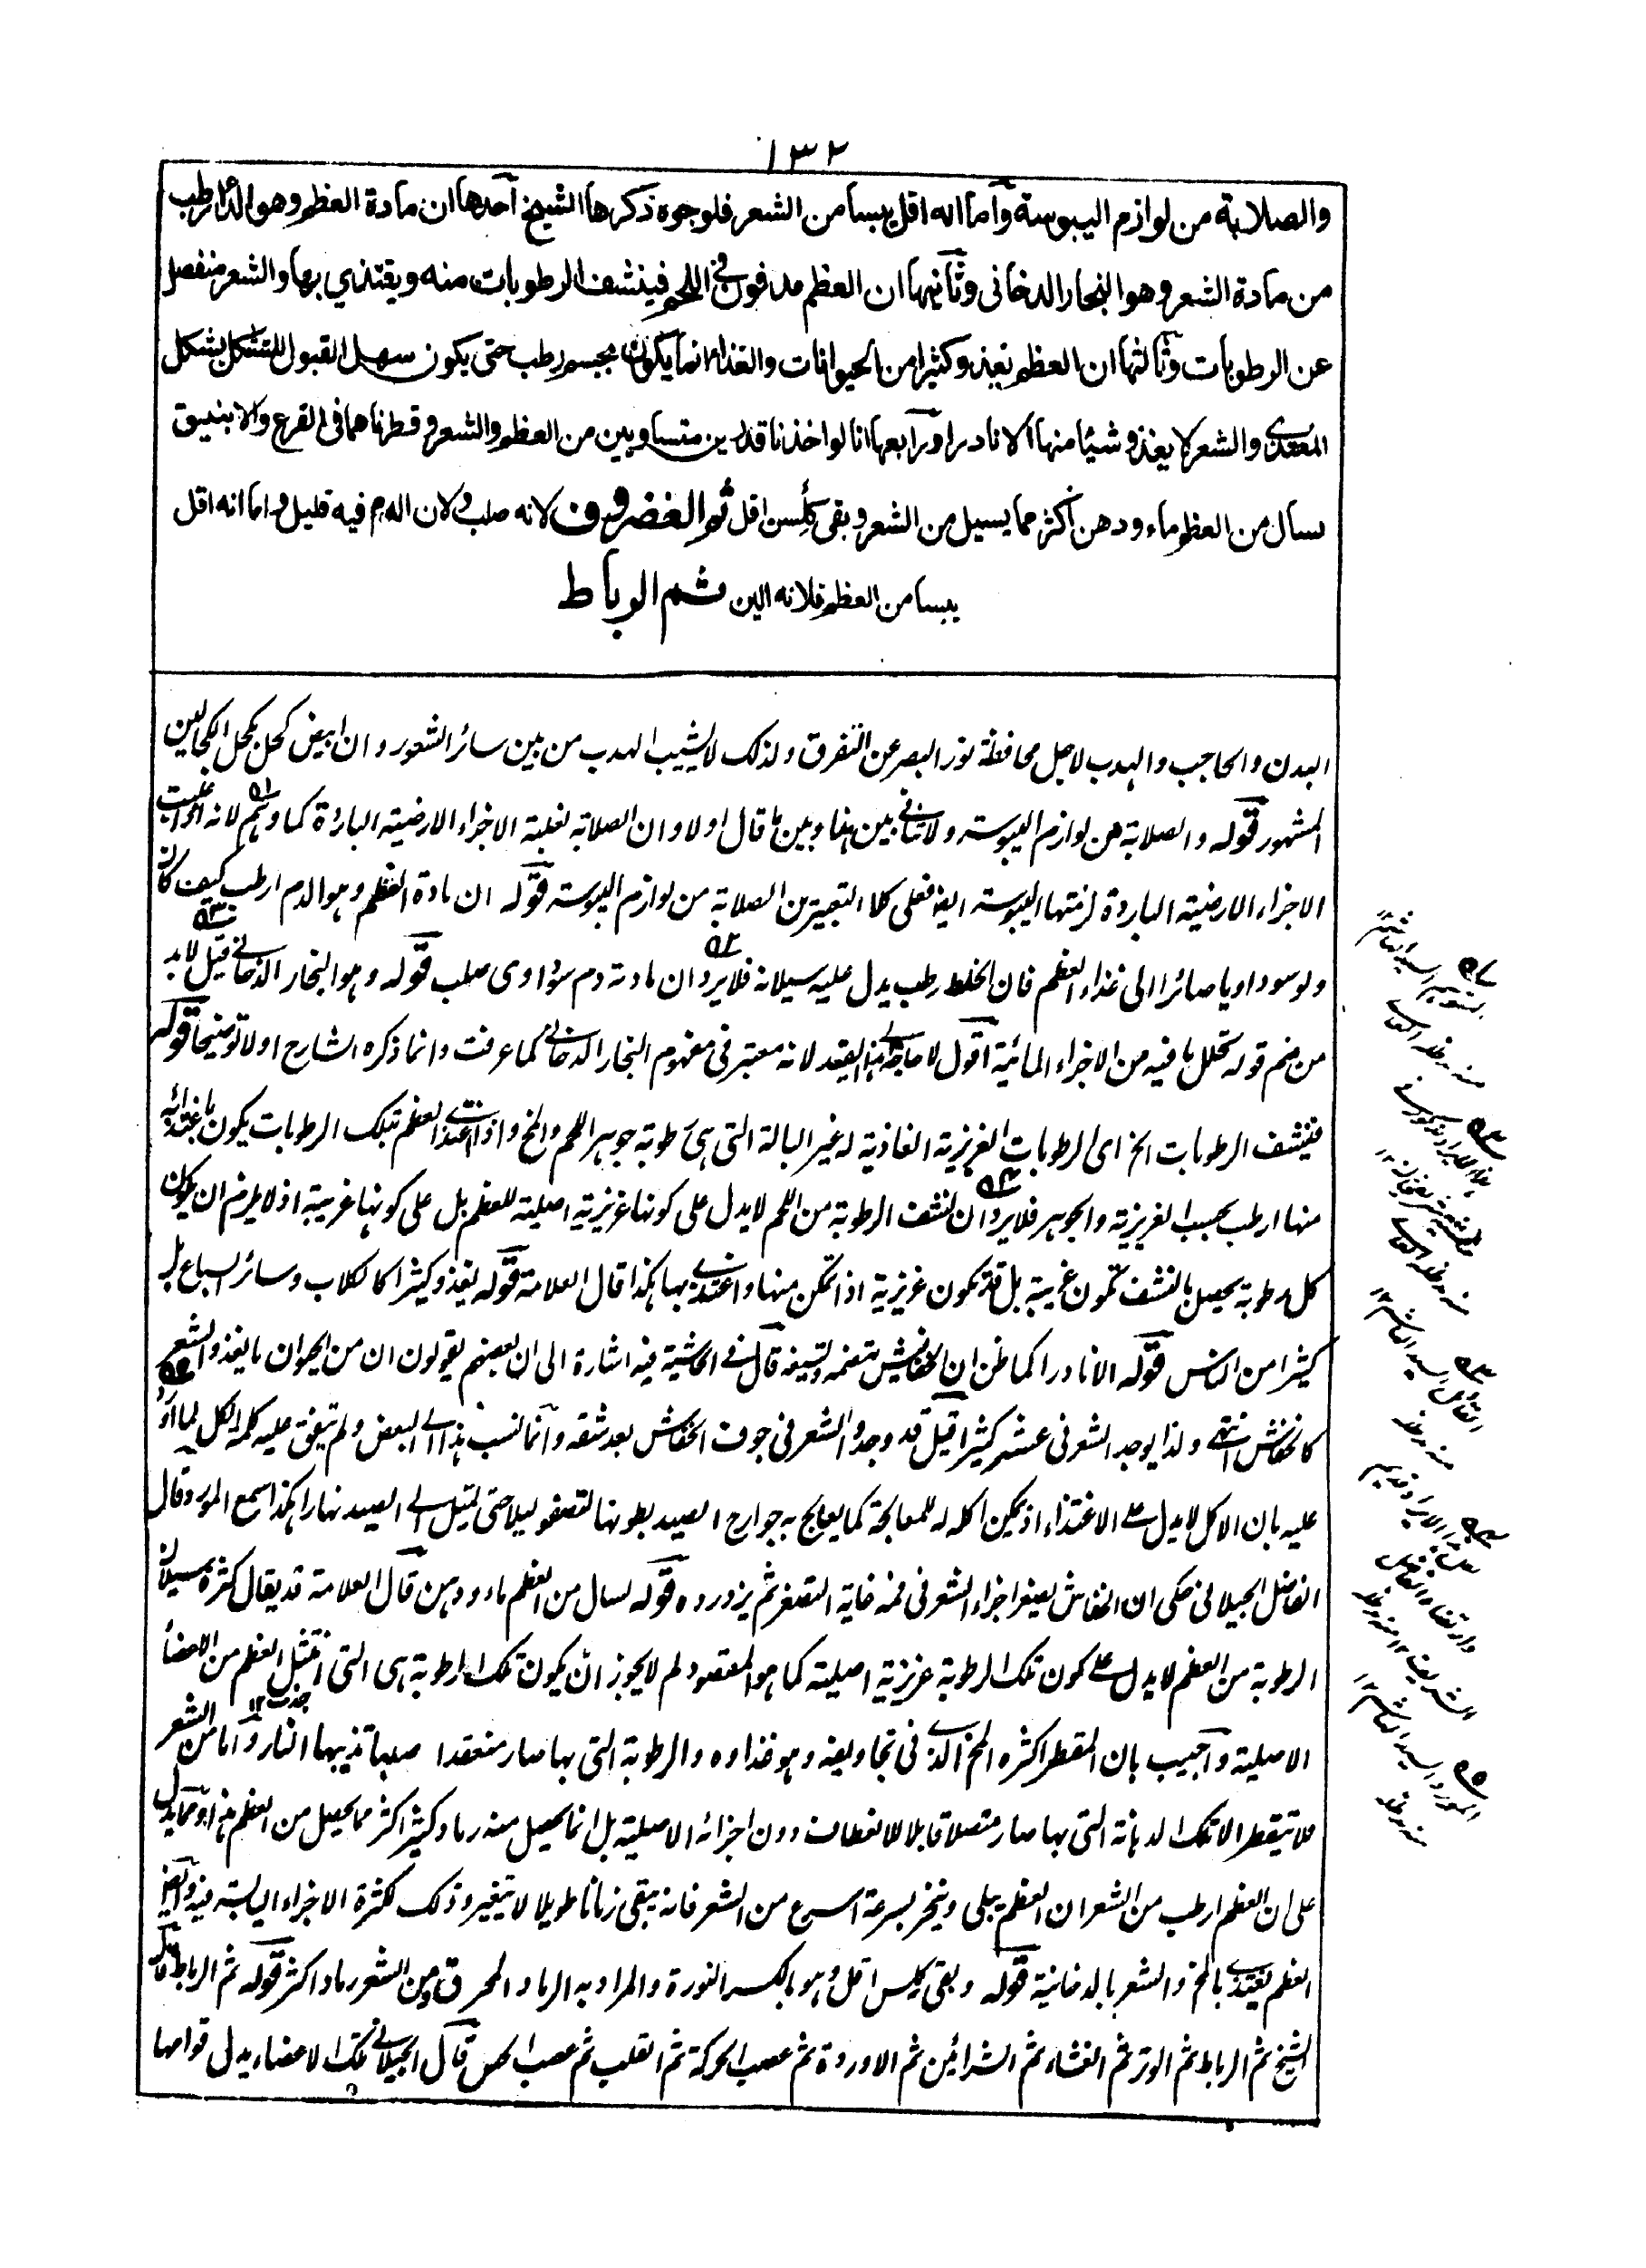 ١٣٢
والصلابة من لوازم اليبوسة وأما انه اقل يبسا من الشعر فلوجوه ذكرها الشيخ آحدها ان مادة العظم وهو الدم ارطب
من مادة الشعر وهو البخار الدخانى وثآنيها ان العظم مدفون في اللحم فينشف الرطوبات منه ويغتذي بها والشعر منفصل
عن الرطوبات وثآلثها ان العظم يغذو كثيرا من الحيوانات والغذاء انما يكون بجسم رطب حتى يكون سهل القبول للتشكل بشكل
المغتذى والشعر لا يغذو شيئا منها الا نادرا ورآبعها انا لو اخذنا قدرين متساويين من العظم والشعر وقطرناهما في القرع والانبيق
سال من العظم ماء ودهن أكثر مما يسيل من الشعر وبقى كلس اقل ثم الغضروف لانه صلب ولان الدم فيه قليل واما انه اقل
يبسا من العظم فلانه الين ثم الرباط
البدن والحاجب والهدب لاجل محافظة نور البصر عن التفرق ولذلك لا يشيب الهدب من بين سائر الشعور وان ابيض كحل بكحل الكحالين
المشهور قوله والصلابة من لوازم اليبوسة ولا تنافى بين هذا وبين ما قال اولا وان الصلابة لغلبة الاجزاء الارضية الباردة كما وهم لانه اذا غلبت
الاجزاء الارضية الباردة لزمتها اليبوسة ايضا فعلى كلا التعبيرين الصلابة من لوازم اليبوسة قوله ان مادة العظم وهو الدم ارطب كيف كان
ولو سوداويا صائرا الى غذاء العظم فان الخلط رطب يدل عليه سيلانه فلا يرد ان مادته دم سوداوى صلب قوله وهو البخار الدخانى قيل لابد
من ضم قوله تحلل ما فيه من الاجزاء المائية اقول لا حاجة الى هذا القيد لانه معتبر فى مفهوم البخار الدخانى كما عرفت وانما ذكره الشارح اولا توضيحا قوله
فينشف الرطوبات الخ اى الرطوبات الغريزية الغاذية له غير البالة التى هى رطوبة جوهر اللحم والمخ واذا اغتذى العظم بتلك الرطوبات يكون ما يغتذى به
منها ارطب بحسب الغريزية والجوهر فلا يرد ان نشف الرطوبة من اللحم لا يدل على كونها غريزية اصلية للعظم بل على كونها غريبة اذ لا يلزم ان يكون
كل رطوبة يحصل بالنشف تكون غريبة بل قد تكون غريزية اذا تمكن منها واغتذى بها هكذا قال العلامة قوله يغذو كثيرا كالكلاب وسائر السباع بل
كثيرا من الناس قوله الا نادرا كما ظن ان الخفافيش تتقممه وتسيغه قال فى الحاشية فيه اشارة الى ان بعضهم يقولون ان من الحيوان ما يغذوه الشعر
كالخفاش انتهى ولذا يوجد الشعر فى عشه كثيرا قيل قد وجدوا الشعر فى جوف الخفاش بعد شقه وآنما نسب هذا الى البعض ولم يتفق عليه كلمة الكل لما اورد
عليه بان الاكل لا يدل على الاغتذاء اذ يمكن اكله له للمعالجة كما يعالج به جوارح الصيد بطونها لتصفو ليلا حتى تميل الى الصيد نهارا هكذا سمع المورد وقال
الفاضل الجيلانى حكى ان الخفاش يصغر اجزاء الشعر فى فمه غاية التصغر ثم يزدرده قوله لسال من العظم ماء ودهن قال العلامة قد يقال كثرة سيلان
الرطوبة من العظم لا يدل على كون تلك الرطوبة غريزية اصلية كما هو المقصود لم لا يجوز ان يكون تلك الرطوبة هى التى العظم من الاعضاء
الاصلية وآجيب بان المقطر اكثره المخ الذى فى تجاويفه وهو غذاؤه والرطوبة التى بها صار منعقدا صلبا تذيبها النار وآما من الشعر
فلا يتقطر الا تلك الدهانة التى بها صار متصلا قابلا للانعطاف دون اجزائه الاصلية بل انما يحصل منه رماد كثير اكثر مما يحصل من العظم ومما يدل
على ان العظم ارطب من الشعر ان العظم يبلى وينخر بسرعة اسرع من الشعر فانه يبقى زمانا طويلا لا يتغير وذلك لكثرة الاجزاء اليابسة فيه وآيضا
العظم يغتذى بالمخ والشعر بالدخانية قوله وبقى كلس اقل وهو بالكسر النورة والمراد به الرماد المحرق ومن الشعر رماد اكثر قوله ثم الرباط قال
الشيخ ثم الرباط ثم الوتر ثم الغشاء ثم الشرائين ثم الاوردة ثم عصب الحركة ثم القلب ثم عصب الحس قال الجيلانى تلك الاعضاء يدل قوامها